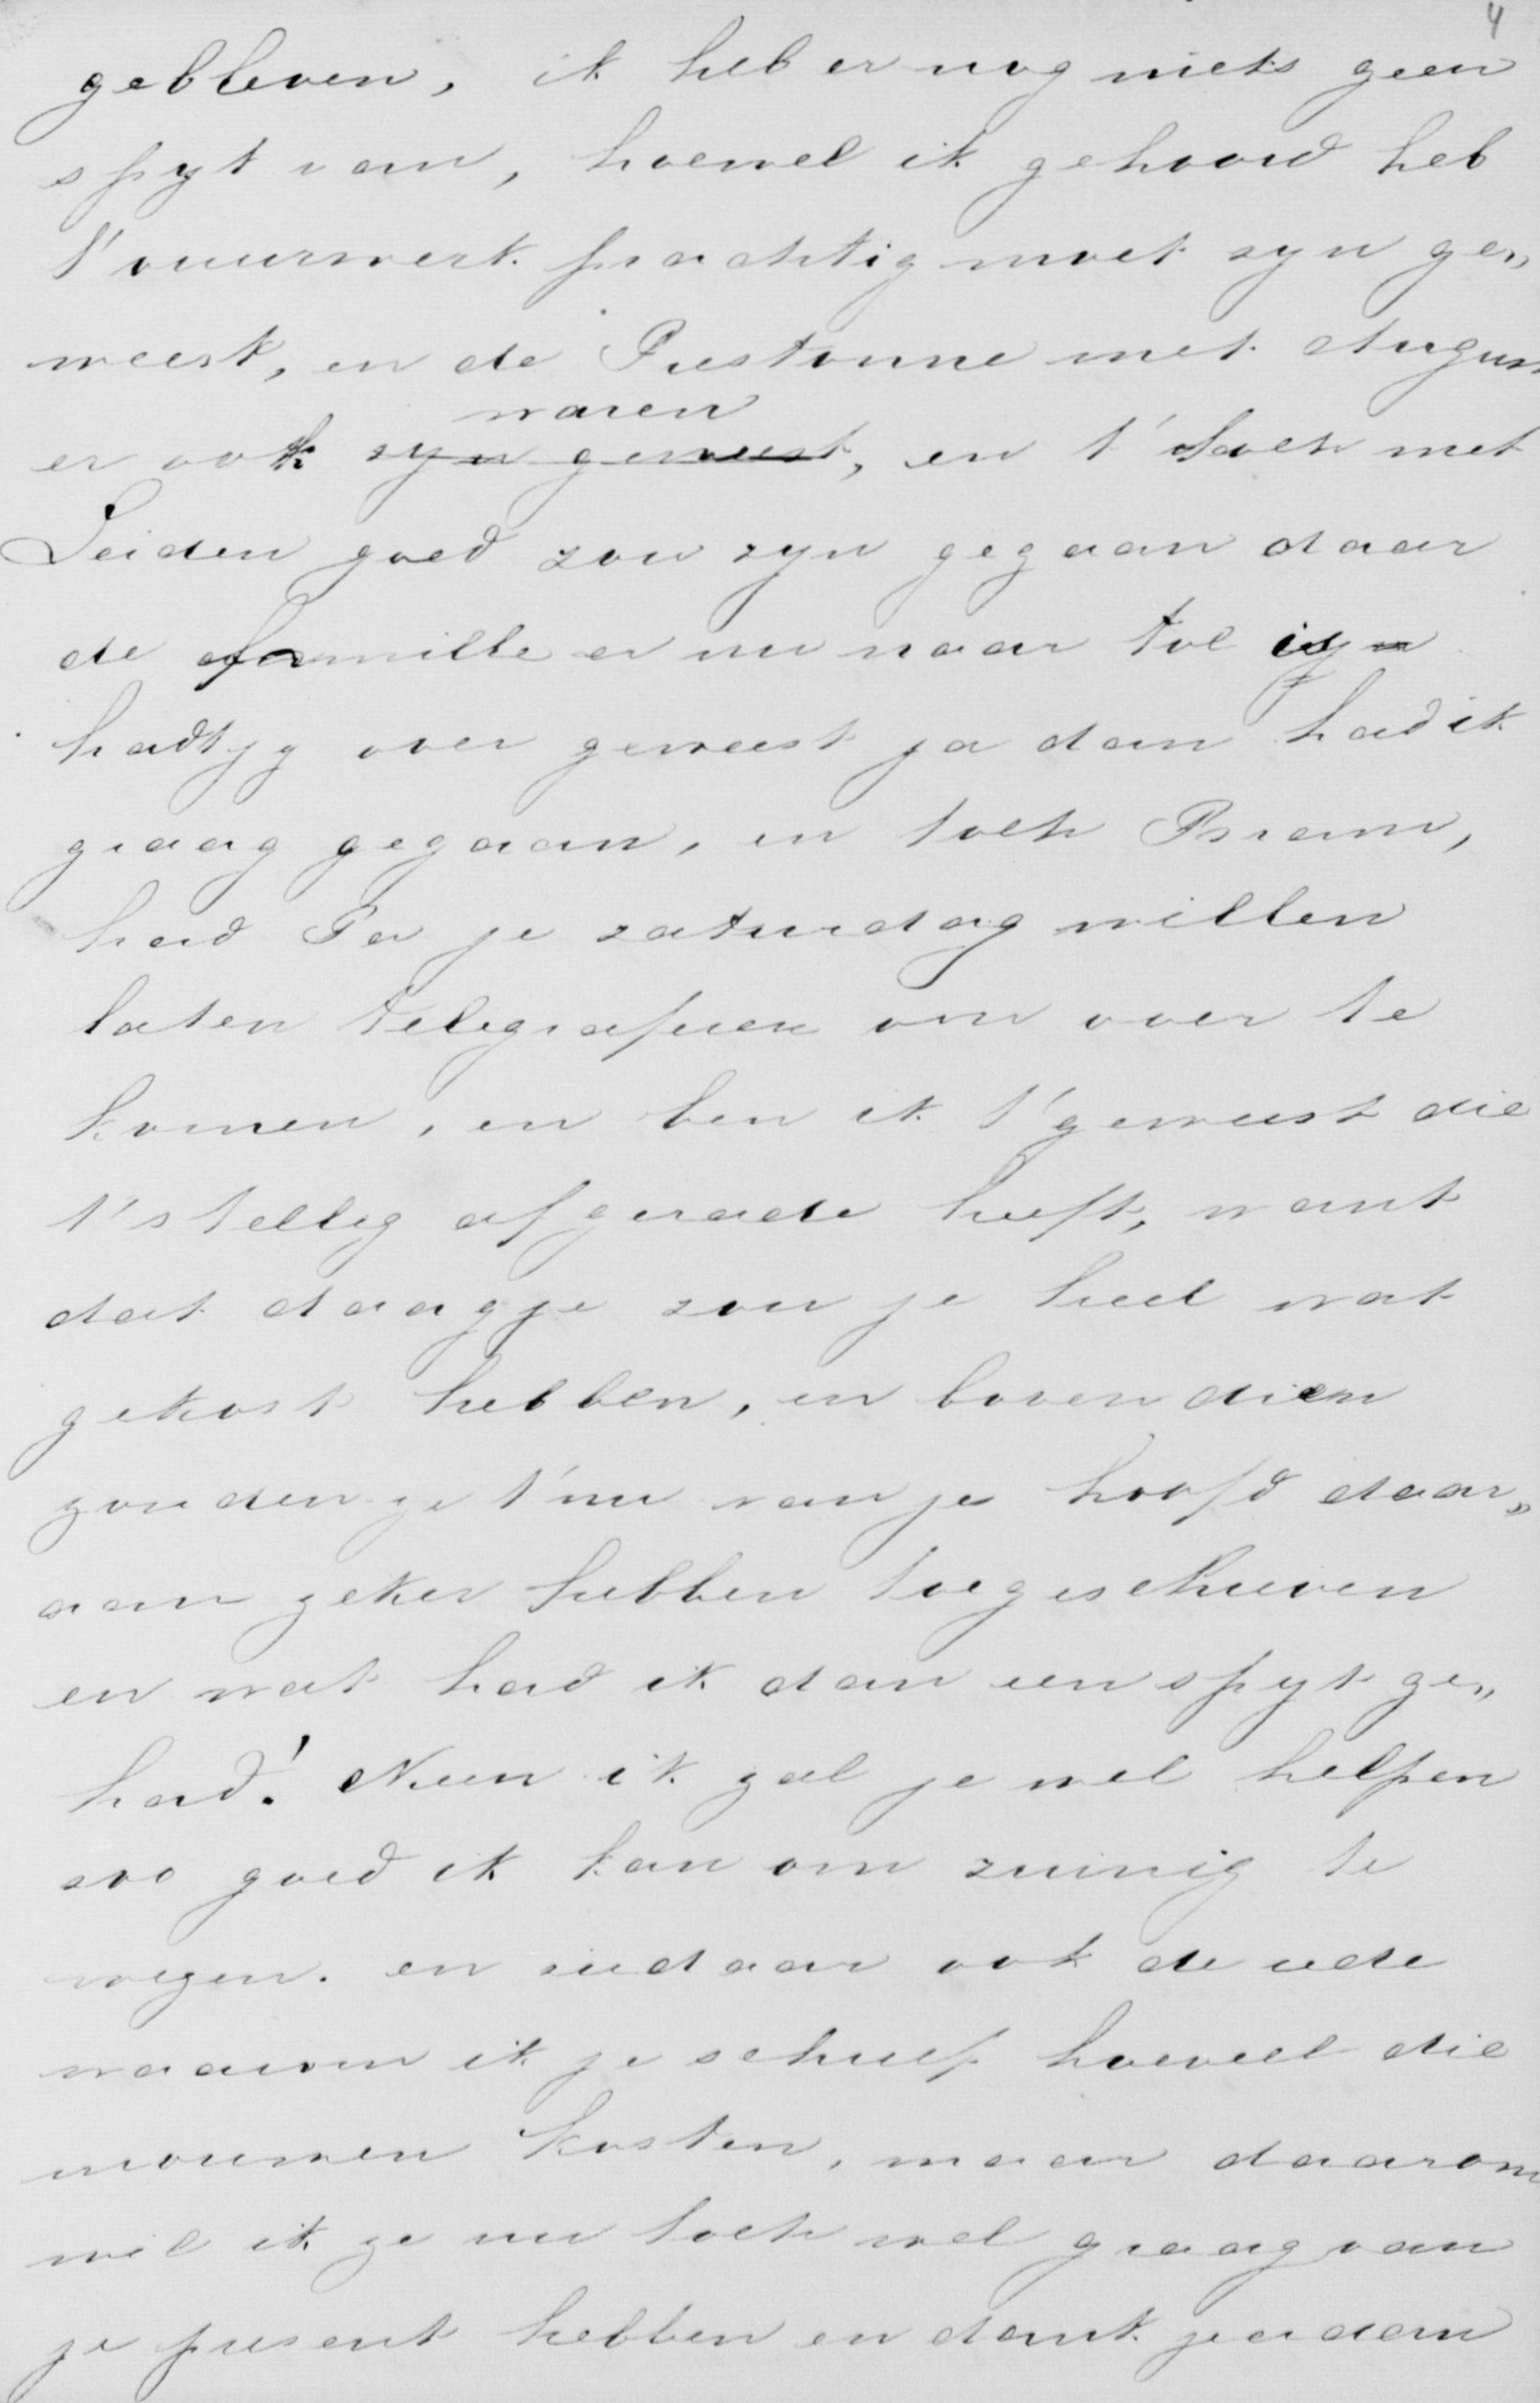 4
gebleven, ik heb er nog niets geen
spyt van, hoewel ik gehoord heb
t' vuurwerk prachtig moet zyn ge„
weest, en de Prestonne met August
waren
er ook zyn geweest, en t' toch met
Leiden goed zou zyn gegaan daar
de familie er nu naar toe is
hadt jy over geweest ja dan had ik
graag gegaan, en toch Bram,
had Pa je zaturdag willen
laten telegrafeeren om over te
komen, en ben ik t' geweest die
t' stellig afgerade heeft, want
dat daagje zou je heel wat
gekost hebben, en bovendien
zouden ze t' nu van je hoofd daar„
aan zeker hebben toegeschreven
en wat had ik dan een spyt ge„
had! Neen ik zal je wel helpen
zoo goed ik kan om zuinig te
wezen. en ziedaar ook de rede
waarom ik je schreef hoeveel die
mouwen kosten, maar daarom
wil ik ze nu toch wel graag van
je present hebben en dank je er dan